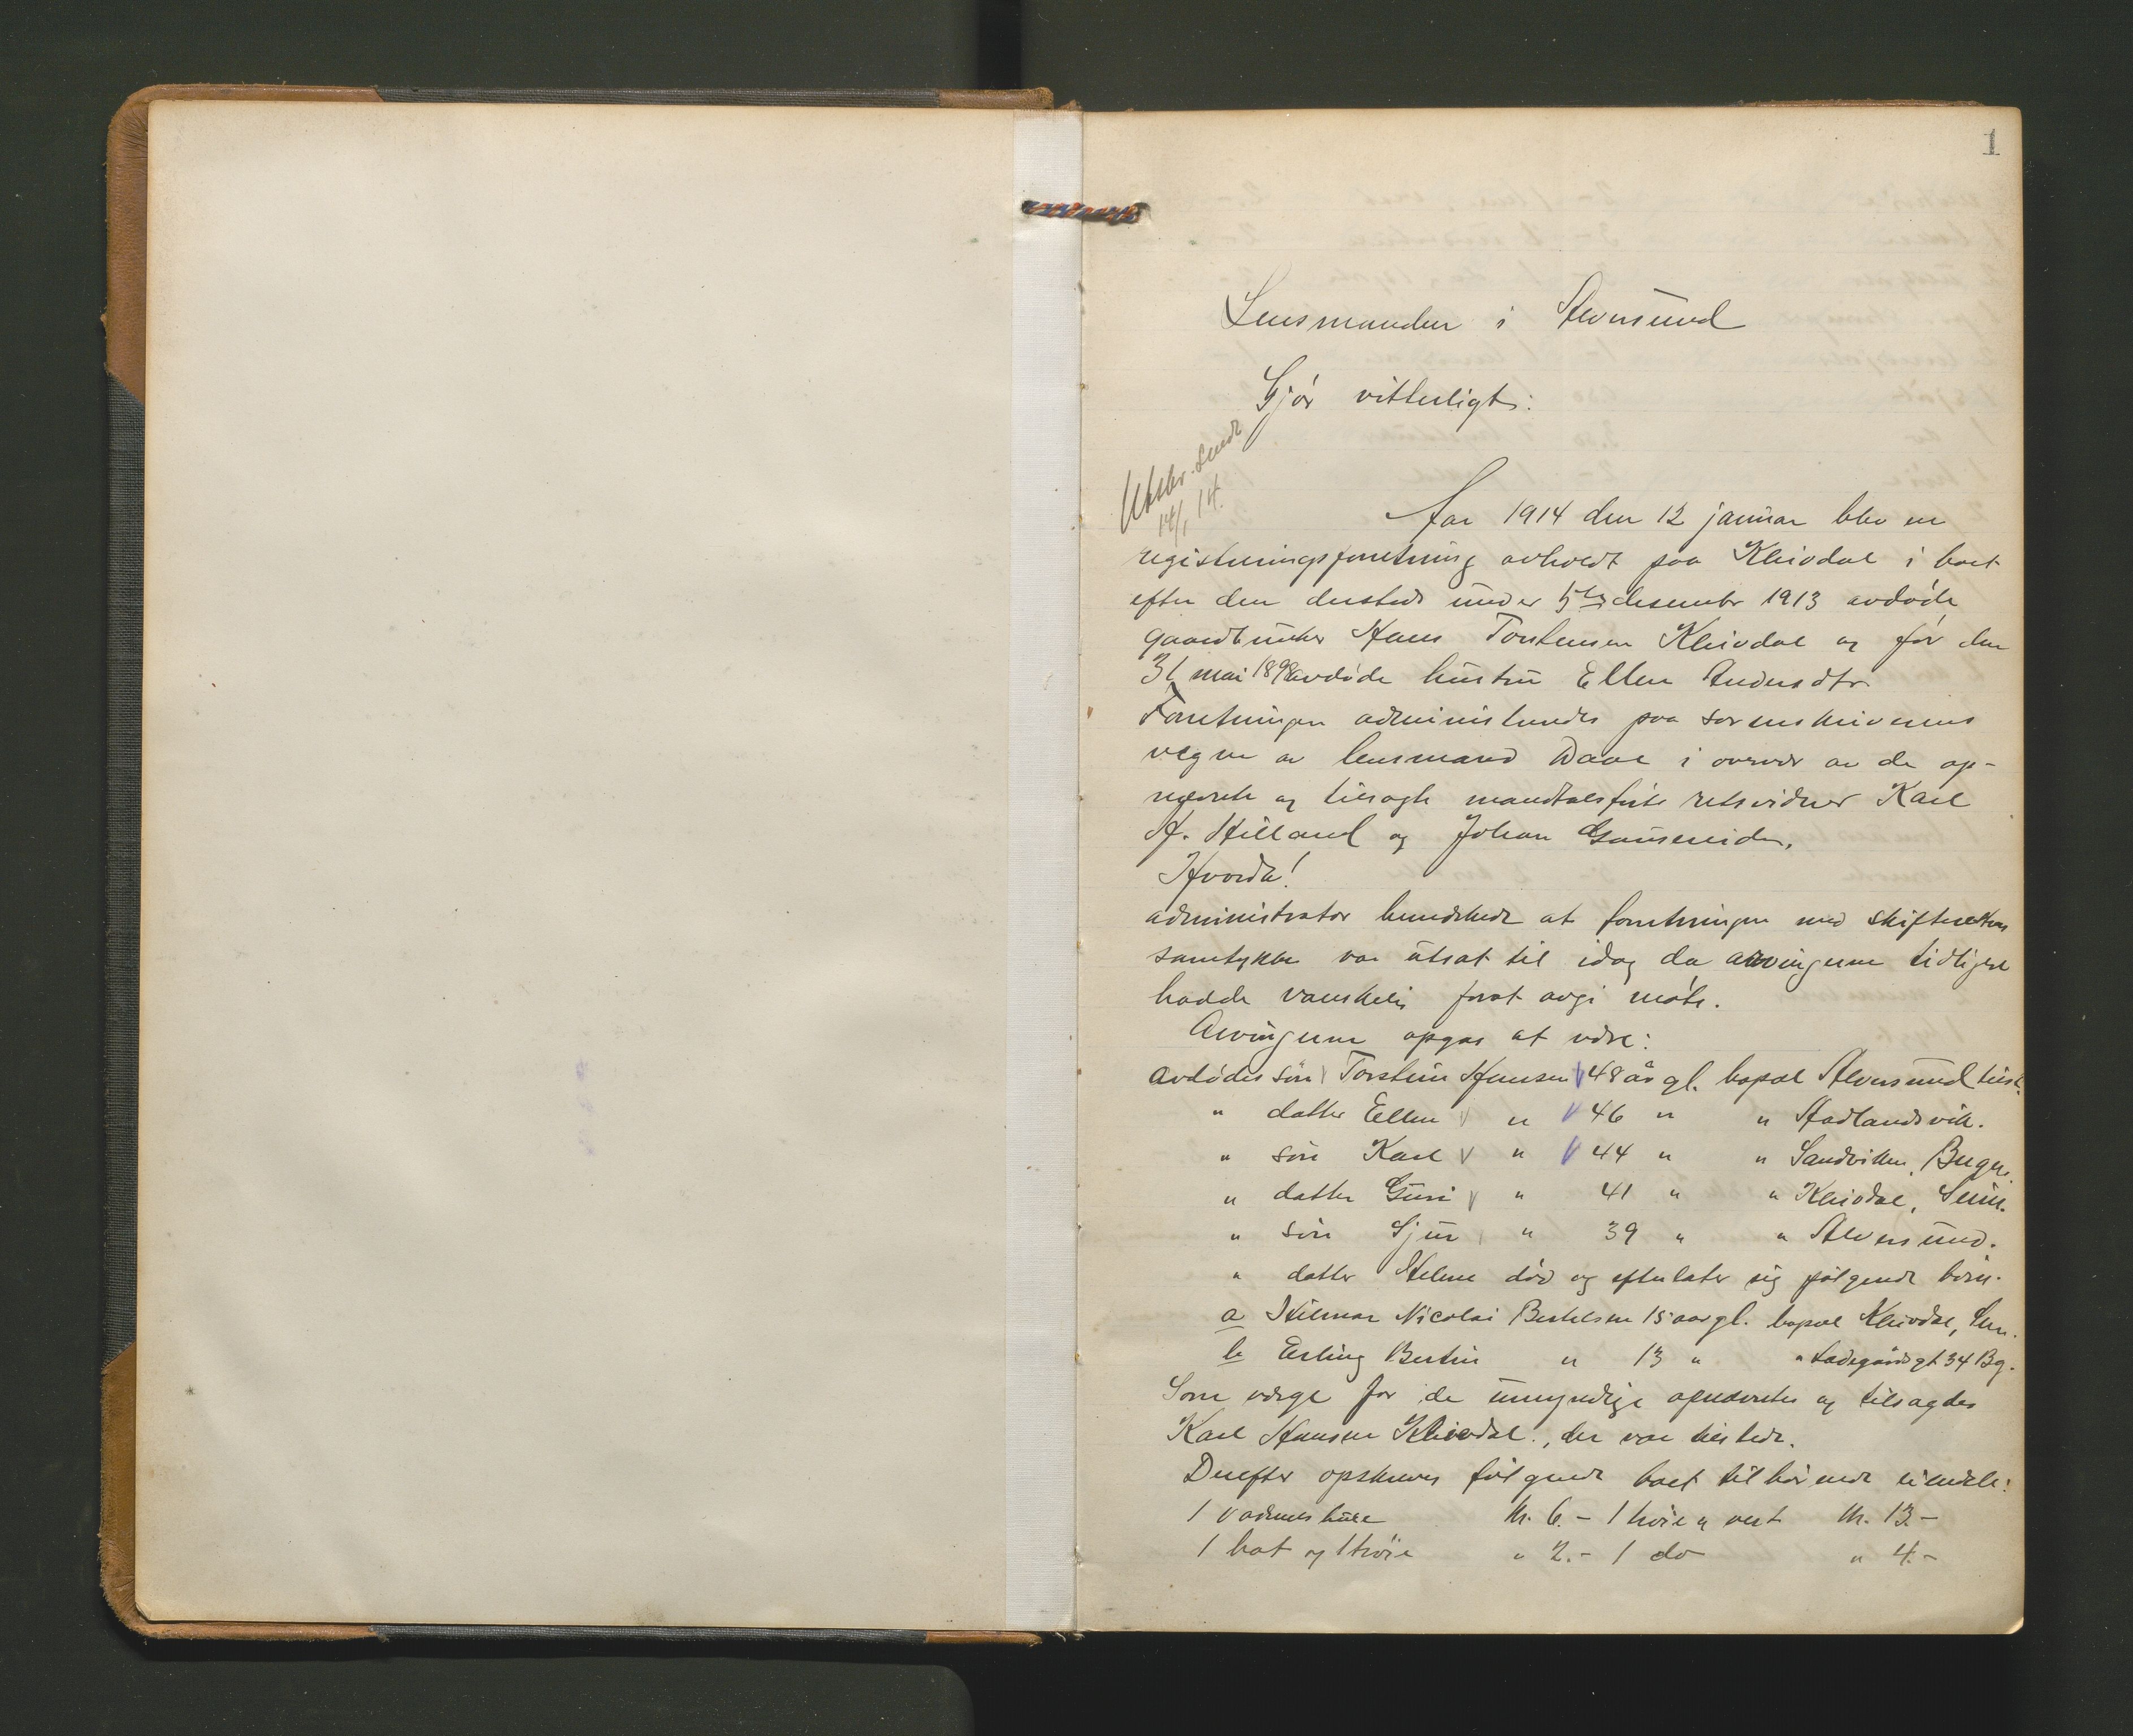 1
Lensmanden i Alversund
Gjör vitterligt:
Utskr. sendt
14/1 14.
Aar 1914 den 12 januar blev en
registreringsforretning avholdt paa Kleivdal i boet
efter den dersteds under 5te desember 1913 avdøde
gaardbruker Hans Torstensen Kleivdal og før den
31 mai 1898 avdøde hustru Ellen Andersdtr.
Forretningen administrertes paa sorenskriverens
vegne av lensmand Daae i overvær av de op-
nævnte og tilsagte mandtalsførte retsvidner Karl
H. Hilland og Johan Gauseneide.
Hvorda!
administrator bemerkede at forretningen med skifterettens
samtykke var utsat til idag da arvingerne tidligere
hadde vanskelig forat avgi møte.
Arvingerne opgas at være:
Avdødes søn Torstein Hansen 48 år gl. bopæl Alversund tilst.
" datter Ellen " 46 " " Hadlandsvik.
" søn Karl " 44 " " Sandviken, Bergen.
" datter Guri " 41 " " Kleivdal, Seim.
" søn Sjur " 39 " " Alversund.
" datter Helene død og efterlater sig følgende børn.
a Hilmar Nicolai Bertelsen 15 aar gl. bopæl Kleivdal, Sem.
b Erling Bertin " 13 " " Ladegårdsgt 34 Bg.
Som værge for de umyndige opnævntes og tilsagdes
Karl Hansen Kleivdal, der var tilstede.
Derefter opskreves følgende boet tilhørende eiendele:
1 vadmels buxe kr. 6.- 1 trøie og vest kr. 13.-
1 hat og 1 trøie " 2.- 1 do " 4.-